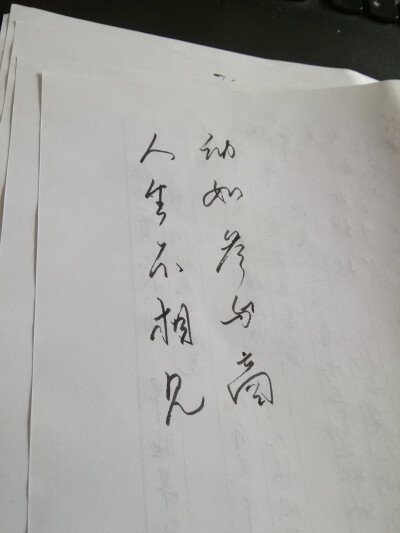 人生不相见
动如参与商